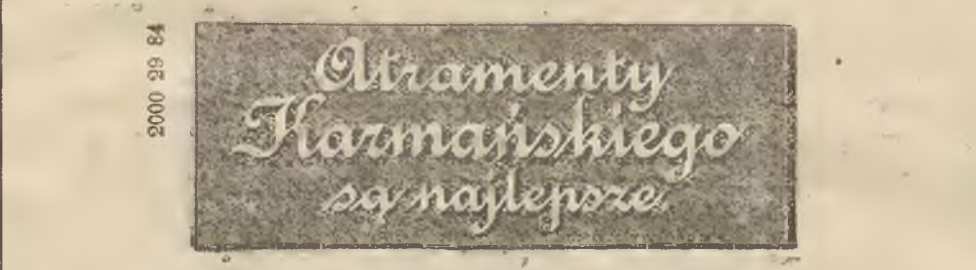 2000 29 84
Atramenty
Karmańskiego
są najlepsze